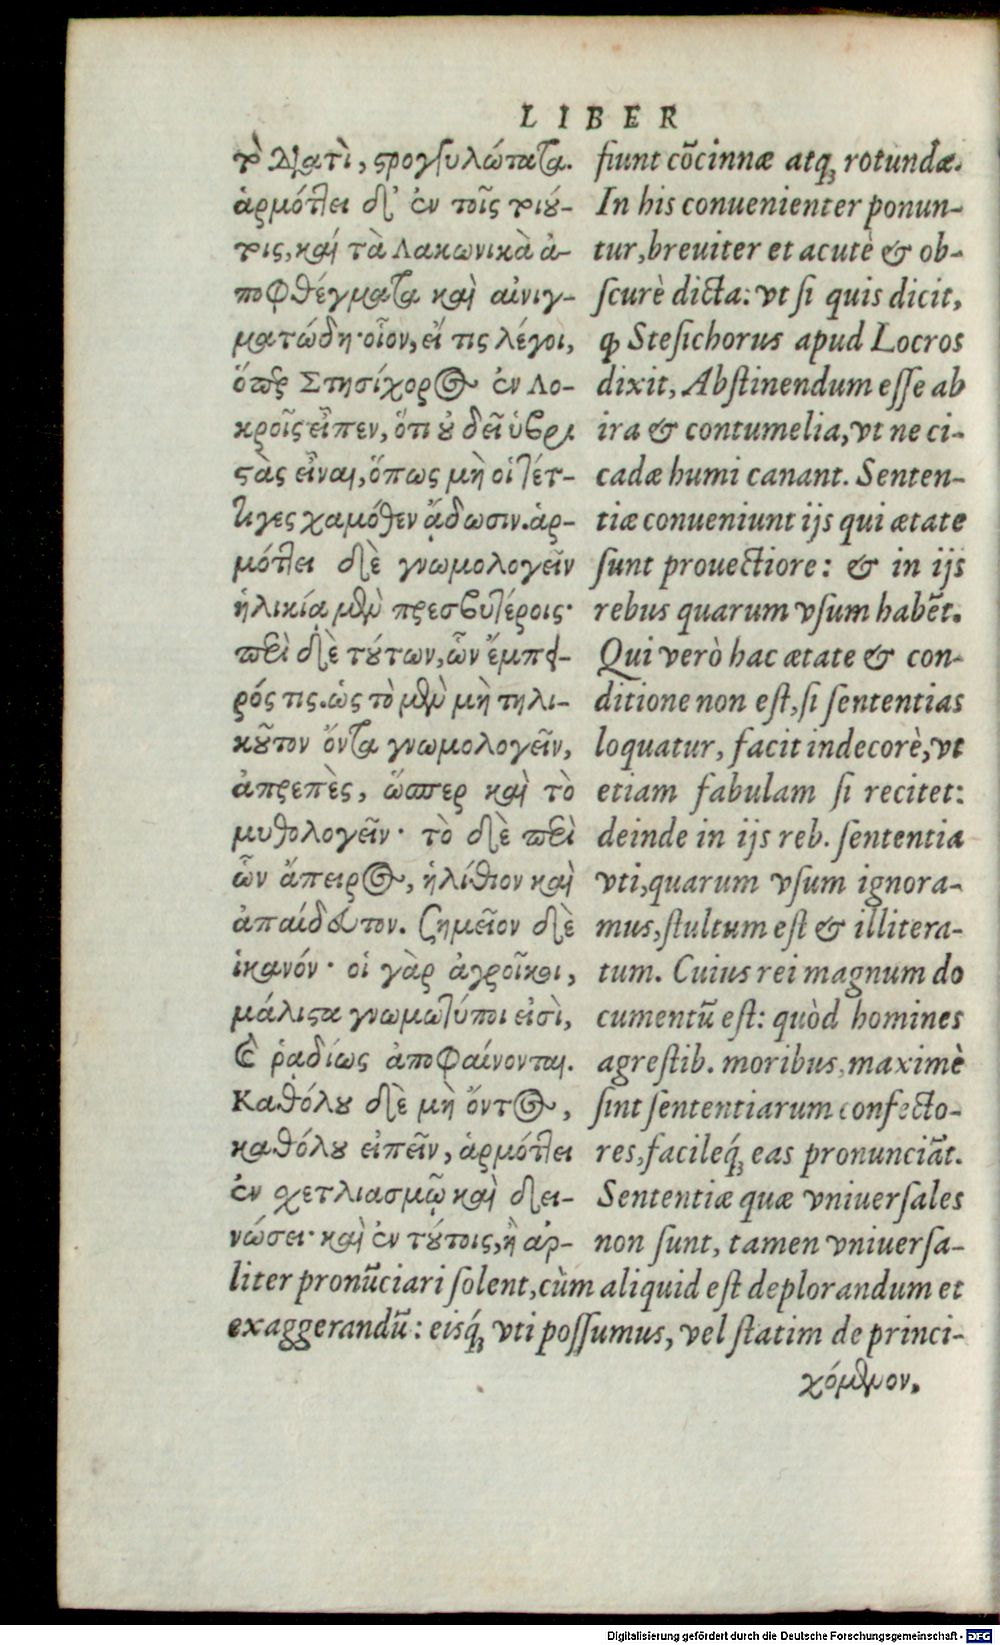 LIBER
τὸ Διατὶ, στρογγυλώτατα.
ἁρμόττει δ᾽ ἐν τοῖς τοιού-
τοις, καὶ τὰ Λακωνικὰ ἀ-
ποφθέγματα καὶ αἰνιγ-
ματώδη· οἷον, εἴ τις λέγοι,
ὅπερ Στησίχορος ἐν Λο-
κροῖς εἶπεν, ὅτι οὐ δεῖ ὑβρι
στὰς εἶναι, ὅπως μὴ οἱ τέτ-
τιγες χαμόθεν ᾄδωσιν. ἁρ-
μόττει δὲ γνωμολογεῖν
ἡλικίᾳ μὲν πρεσβυτέροις·
περὶ δὲ τούτων, ὧν ἔμπει-
ρός τις. ὡς τὸ μὲν μὴ τηλι-
κοῦτον ὄντα γνωμολογεῖν,
ἀπρεπὲς, ὥσπερ καὶ τὸ
μυθολογεῖν· τὸ δὲ περὶ
ὧν ἄπειρος, ἠλίθιον καὶ
ἀπαίδευτον. Σημεῖον δὲ
ἱκανόν· οἱ γὰρ ἀγροῖκοι,
μάλιστα γνωμοτύποι εἰσὶ,
καὶ ῥᾳδίως ἀποφαίνονται.
Καθόλου δὲ μὴ ὄντος,
καθόλου εἰπεῖν, ἁρμόττει
ἐν σχετλιασμῷ καὶ δει-
νώσει· καὶ ἐν τούτοις, ἢ ἀρ-
fiunt cōcinnæ atq; rotundæ.
In his conuenienter ponun-
tur, breuiter et acutè & ob-
scurè dicta: vt si quis dicit,
q; Stesichorus apud Locros
dixit, Abstinendum esse ab
ira & contumelia, vt ne ci-
cadæ humi canant. Senten-
tiæ conueniunt ijs qui ætate
sunt prouectiore: & in ijs
rebus quarum vsum habēt.
Qui verò hac ætate & con-
ditione non est, si sententias
loquatur, facit indecorè, vt
etiam fabulam si recitet:
deinde in ijs reb. sententia
vti, quarum vsum ignora-
mus, stultum est & illitera-
tum. Cuius rei magnum do
cumentū est: quòd homines
agrestib. moribus, maximè
sint sententiarum confecto-
res, facileq́; eas pronunciāt.
Sententiæ quæ vniuersales
non sunt, tamen vniuersa-
liter pronūciari solent, cùm aliquid est deplorandum et
exaggerandū: eisq́; vti possumus, vel statim de princi-
χόμενον.
Digitalisierung gefördert durch die Deutsche Forschungsgemeinschaft - DFG